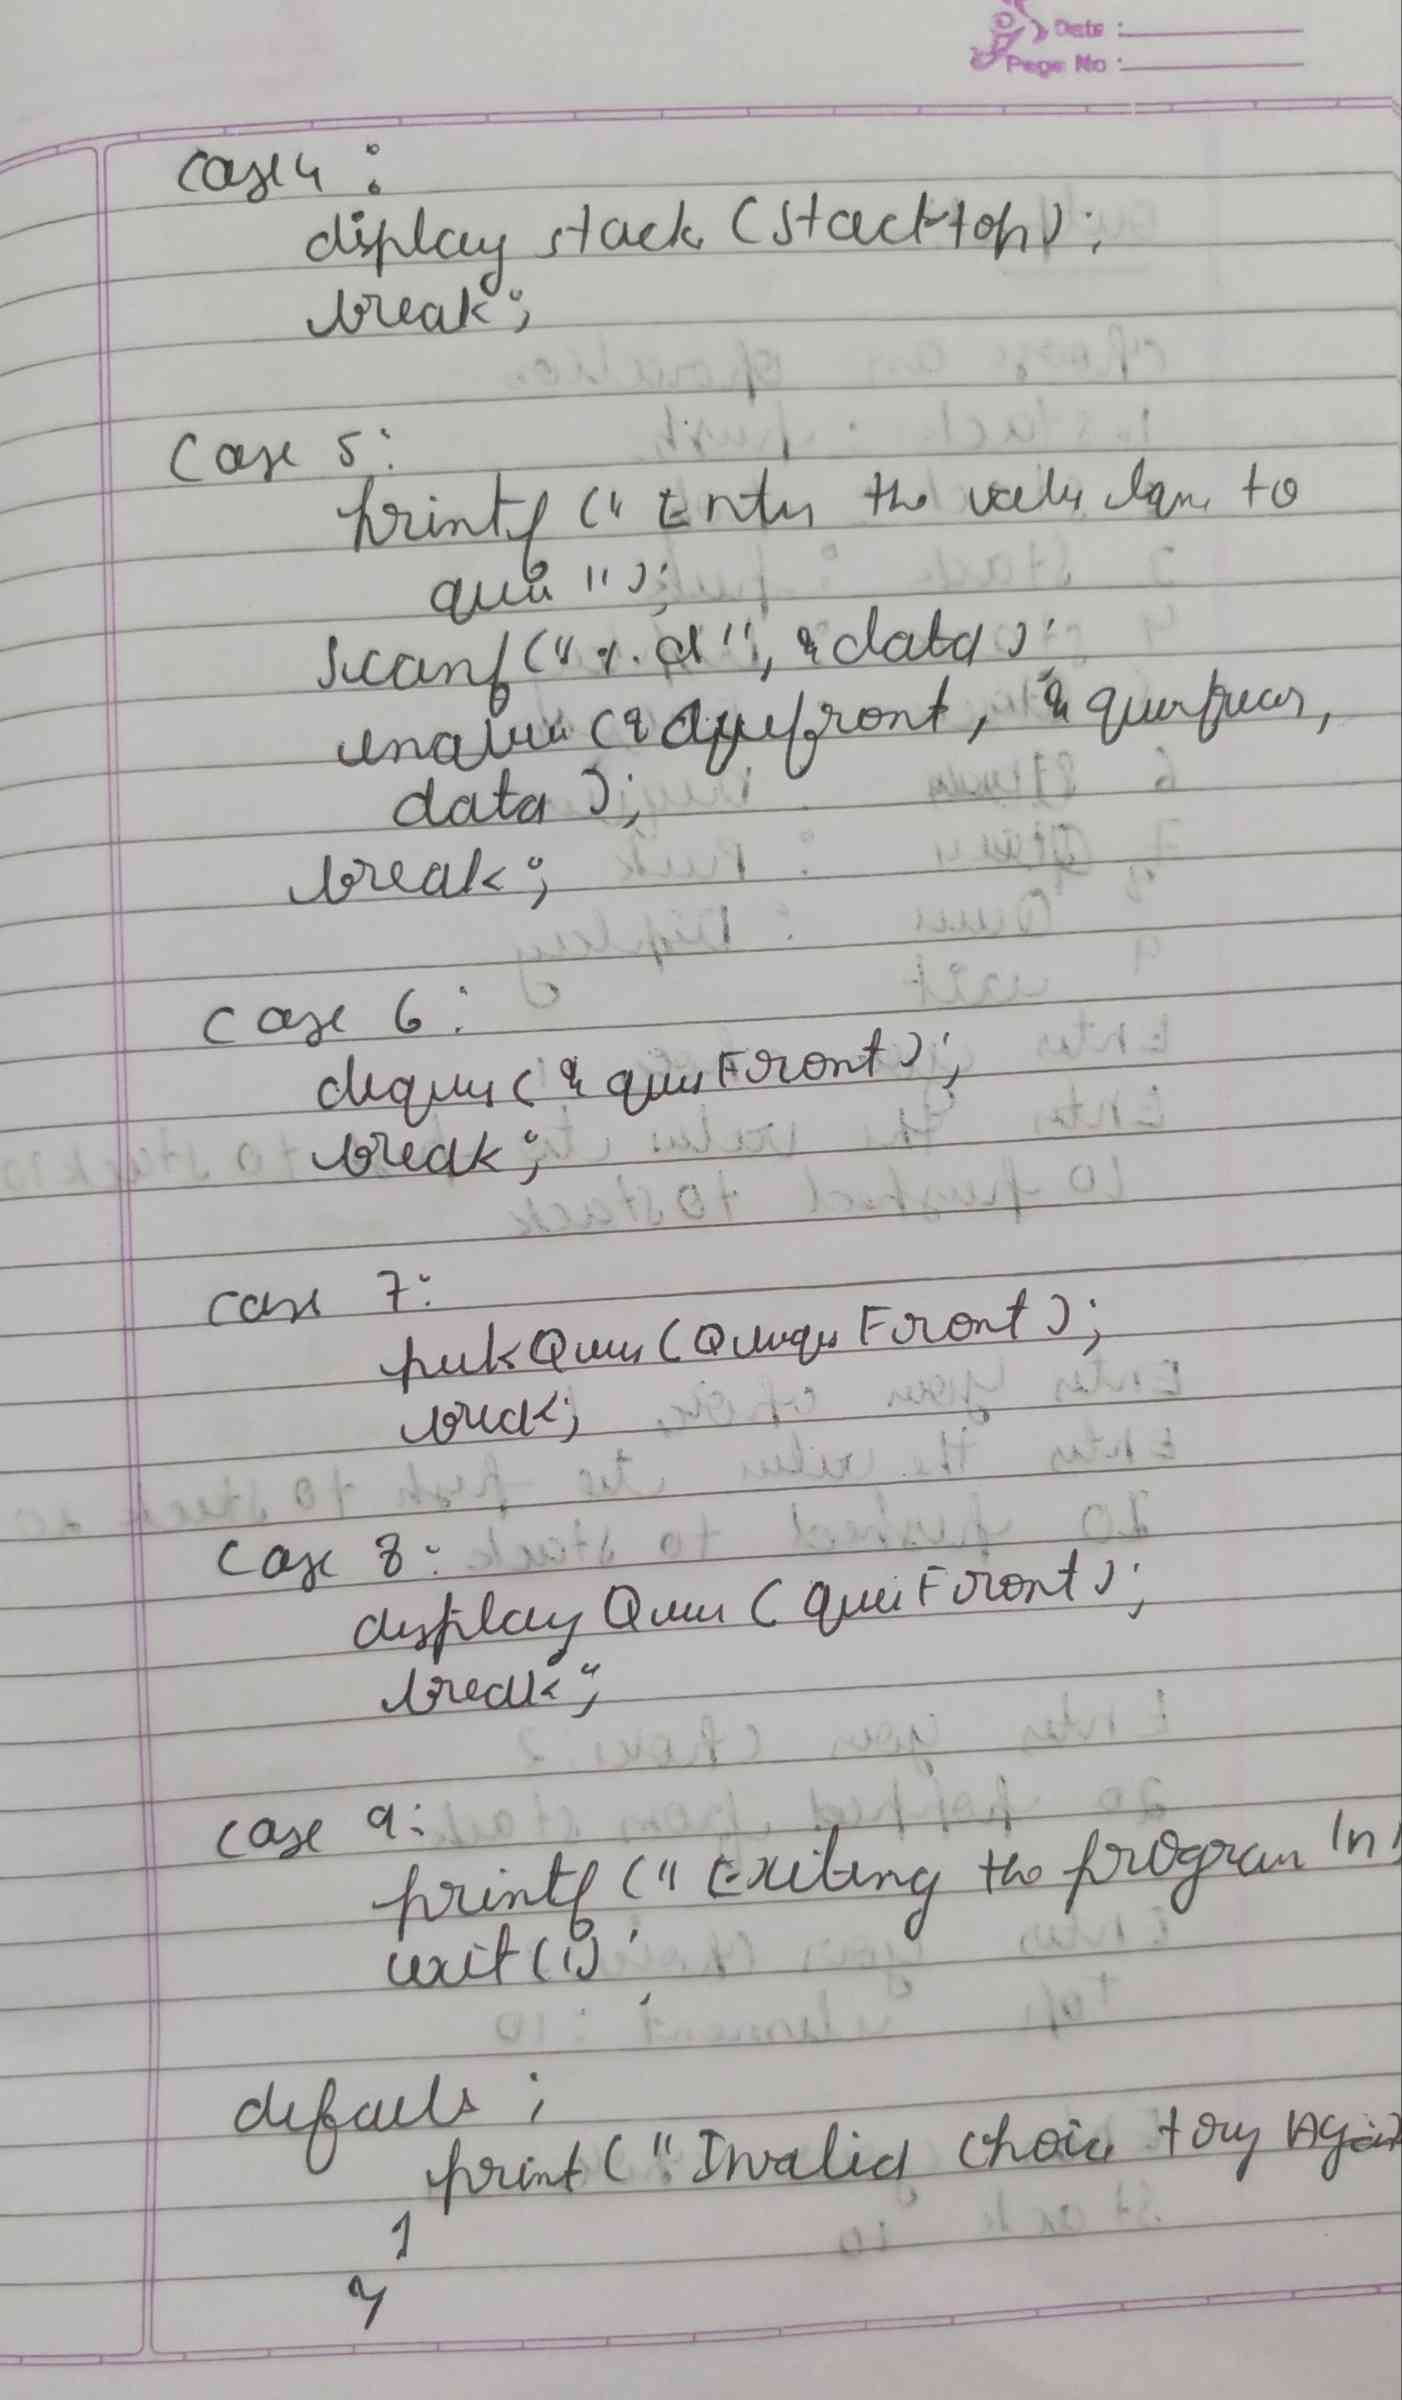 Date :
Page No :
case 4 :
display stack (stacktop);
break;
case 5:
printf (" Enter the value to
queue ");
scanf ("%d", &data);
enqueue (&queuefront, &queuerear,
data );
break;
case 6 :
dequeue ( & queueFront );
break;
case 7:
peekQueue (QueueFront );
break;
case 8:
display Queue ( queueFront );
break;
case 9:
printf (" Exiting the program \n
exit (1);
default ;
print (" Invalid choice try Again
}
}